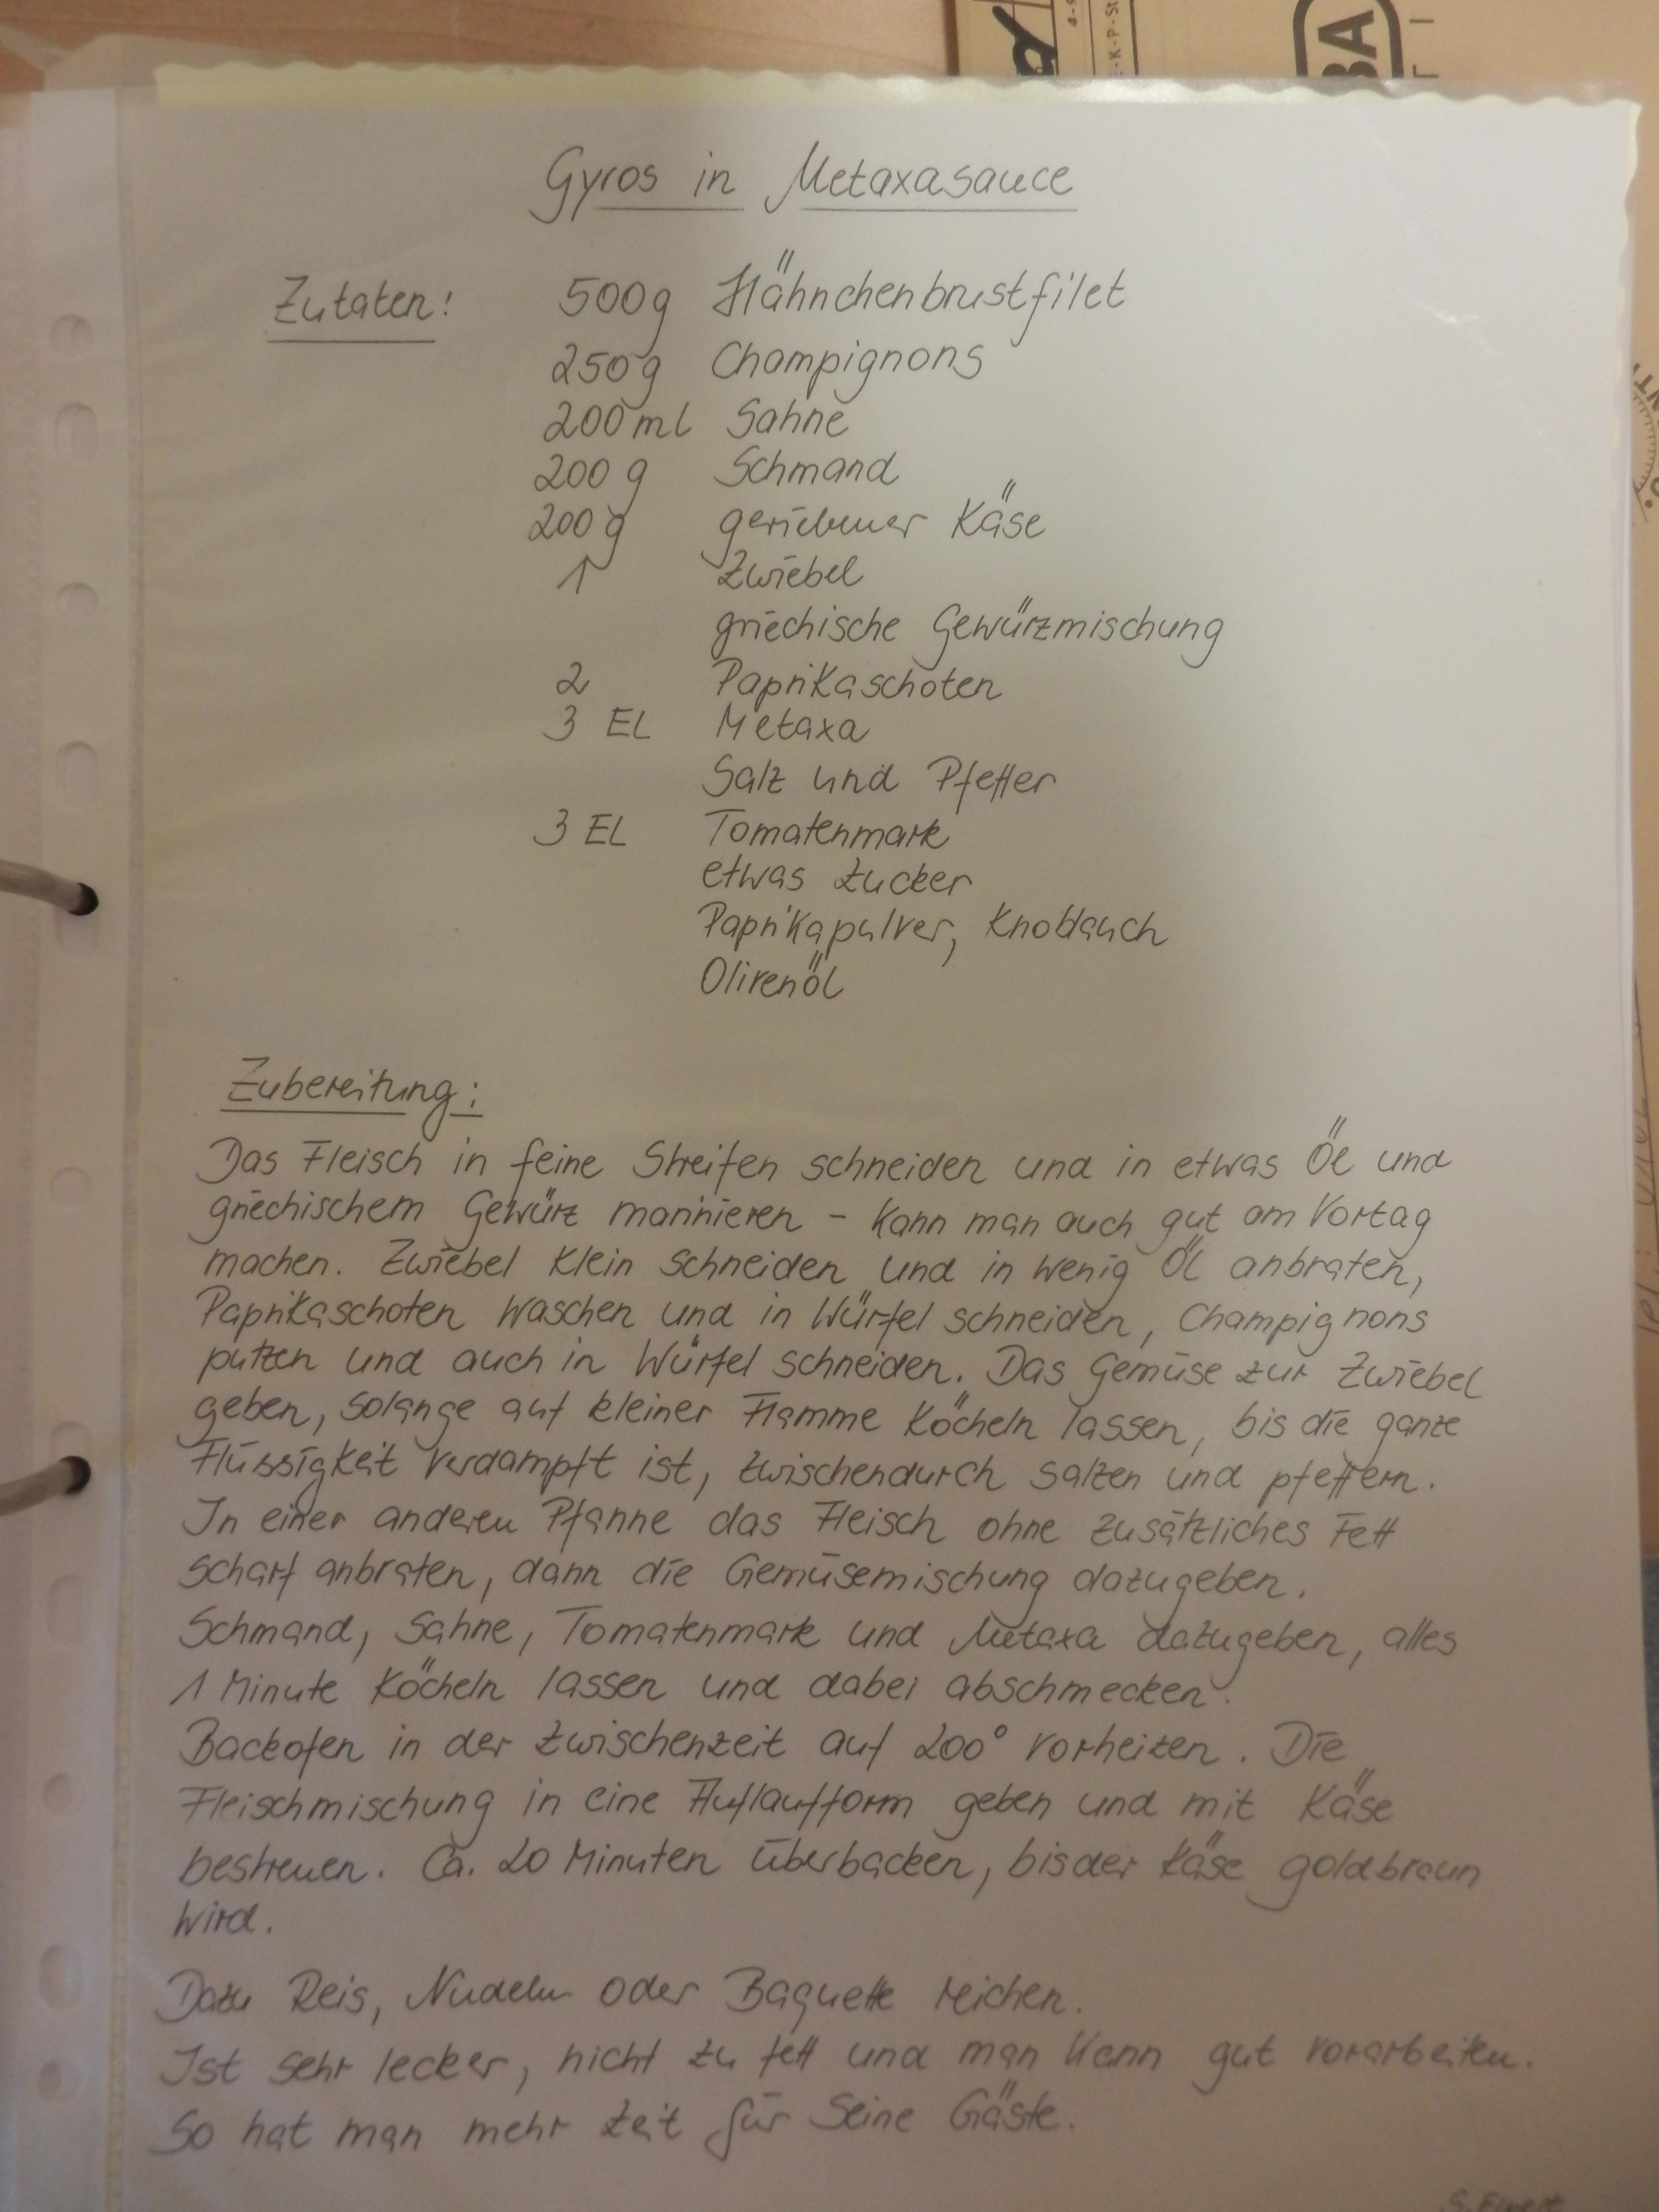 BA
Gyros in Metaxasauce
Zutaten:
500g Hähnchenbrustfilet
250g Champignons
200 ml Sahne
200 g Schmand
200 g geriebener Käse
1 Zwiebel
griechische Gewürzmischung
2 Paprikaschoten
3 EL Metaxa
Salz und Pfeffer
3 EL Tomatenmark
etwas Zucker
Paprikapulver, Knoblauch
Olivenöl
Zubereitung:
Das Fleisch in feine Streifen schneiden und in etwas Öl und
griechischem Gewürz marinieren - kann man auch gut am Vortag
machen. Zwiebel klein schneiden und in wenig Öl anbraten,
Paprikaschoten waschen und in Würfel schneiden, Champignons
putzen und auch in Würfel schneiden. Das Gemüse zur Zwiebel
geben, solange auf kleiner Flamme köcheln lassen, bis die ganze
Flüssigkeit verdampft ist, zwischendurch salzen und pfeffern.
In einer anderen Pfanne das Fleisch ohne zusätzliches Fett
scharf anbraten, dann die Gemüsemischung dazugeben.
Schmand, Sahne, Tomatenmark und Metaxa dazugeben, alles
1 Minute köcheln lassen und dabei abschmecken.
Backofen in der Zwischenzeit auf 200° vorheizen. Die
Fleischmischung in eine Auflaufform geben und mit Käse
bestreuen. Ca. 20 Minuten überbacken, bis der Käse goldbraun
wird.
Dazu Reis, Nudeln oder Baguette reichen.
Ist sehr lecker, nicht zu fett und man kann gut vorarbeiten.
So hat man mehr Zeit für seine Gäste.